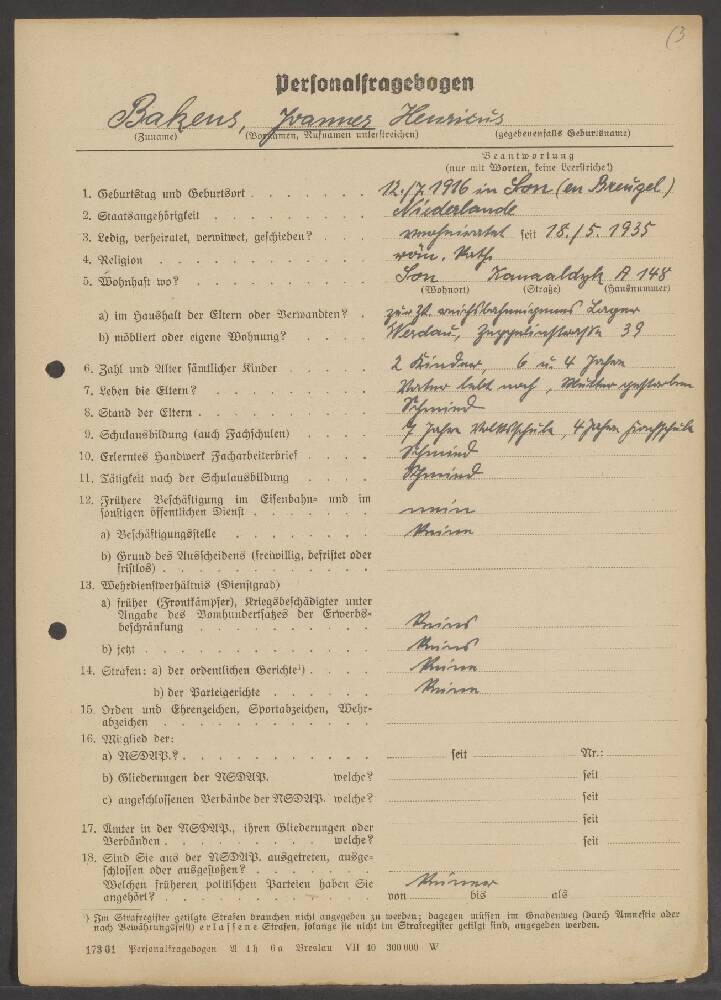 (3
Personalfragebogen
Bakens, Joannes Henricus
(Zuname) (Vornamen, Rufnamen unterstreichen) (gegebenenfalls Geburtsname)
Beantwortung
(nur mit Worten, keine Leerstriche!)
1. Geburtstag und Geburtsort 12./7. 1916 in Son (en Breugel)
2. Staatsangehörigkeit Niederlande
3. Ledig, verheiratet, verwitwet, geschieden? verheiratet seit 18./5. 1935
4. Religion röm. kath.
5. Wohnhaft wo? Son Kanaaldyk A 148
(Wohnort) (Straße) (Hausnummer)
a) im Haushalt der Eltern oder Verwandten? zur Zt. reichsbahneigenes Lager
b) möbliert oder eigene Wohnung? Werdau, Zeppelinstraße 39
6. Zahl und Alter sämtlicher Kinder 2 Kinder, 6 u. 4 Jahre
7. Leben die Eltern? Vater lebt noch, Mutter gestorben
8. Stand der Eltern Schmied
9. Schulausbildung (auch Fachschulen) 7 Jahre Volksschule, 4 Jahre Fachschule
10. Erlerntes Handwerk Facharbeiterbrief Schmied
11. Tätigkeit nach der Schulausbildung Schmied
12. Frühere Beschäftigung im Eisenbahn- und im
sonstigen öffentlichen Dienst nein
a) Beschäftigungsstelle keine
b) Grund des Ausscheidens (freiwillig, befristet oder
fristlos)
13. Wehrdienstverhältnis (Dienstgrad)
a) früher (Frontkämpfer), Kriegsbeschädigter unter
Angabe des Vomhundertsatzes der Erwerbs-
beschränkung keins
b) jetzt keins
14. Strafen: a) der ordentlichen Gerichte¹) keine
b) der Parteigerichte keine
15. Orden und Ehrenzeichen, Sportabzeichen, Wehr-
abzeichen
16. Mitglied der:
a) NSDAP.? seit Nr.:
b) Gliederungen der NSDAP. welche? seit
c) angeschlossenen Verbände der NSDAP. welche? seit
seit
17. Ämter in der NSDAP., ihren Gliederungen oder
Verbänden welche? seit
18. Sind Sie aus der NSDAP. ausgetreten, ausge-
schlossen oder ausgestoßen?
Welchen früheren politischen Parteien haben Sie keiner
angehört? von bis als
¹) Im Strafregister getilgte Strafen brauchen nicht angegeben zu werden; dagegen müssen im Gnadenweg (durch Amnestie oder
nach Bewährungsfrist) erlassene Strafen, solange sie nicht im Strafregister getilgt sind, angegeben werden.
173 01 Personalfragebogen A 4 h 6 a Breslau VII 40 300 000 W